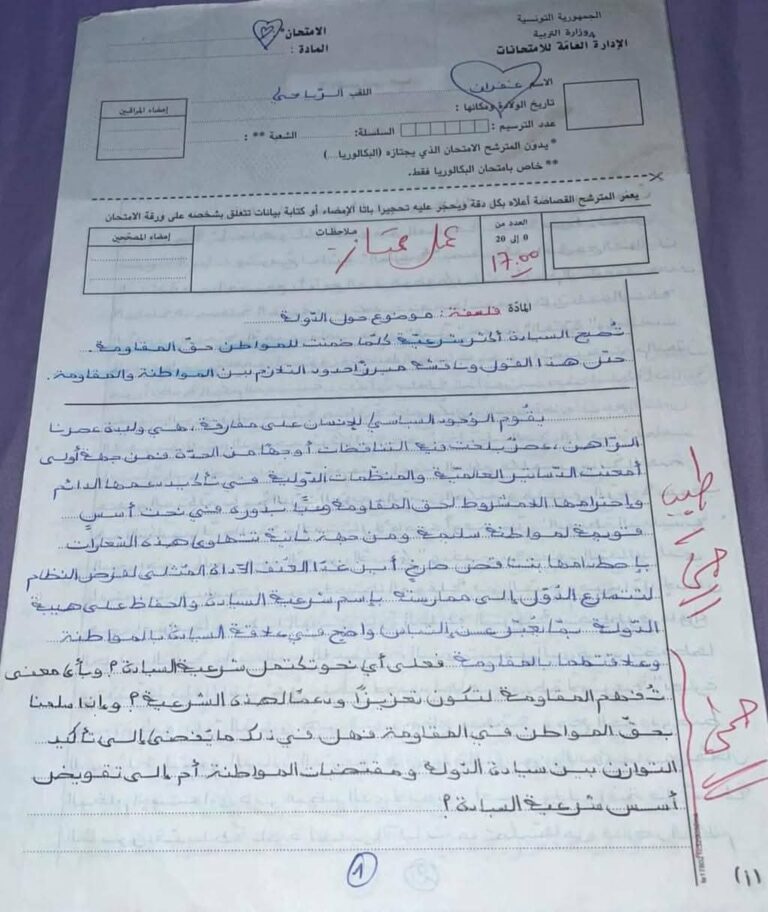 الجمهورية التونسية
وزارة التربية
الإدارة العامة للامتحانات
الامتحان :
المادة :
الاسم غفران اللقب الرياحي
تاريخ الولادة ومكانها :
عدد الترسيم : السلسلة: الشعبة ** :
* يدون المترشح الامتحان الذي يجتازه (البكالوريا...)
** خاص بامتحان البكالوريا فقط.
إمضاء المراقبين
يعمر المترشح القصاصة أعلاه بكل دقة ويحجر عليه تحجيرا باتا الإمضاء أو كتابة بيانات تتعلق بشخصه على ورقة الامتحان
العدد من 0 إلى 20
17.00
ملاحظات
عمل ممتاز
إمضاء المصححين
المادة فلسفة : موضوع حول الدولة
تصبح السيادة أكثر شرعية كلما ضمنت للمواطن حق المقاومة.
حلل هذا القول وناقشه مبرزا حدود التلازم بين المواطنة والمقاومة.
يقوم الوجود السياسي للإنسان على مفارقة، هي وليدة عصرنا
الراهن، عصر بلغت فيه التناقضات أوجها من الحدة فمن جهة أولى
أمعنت الدساتير العالمية والمنظمات الدولية في تأكيد سعيها الدائم
وإحترامها اللامشروط لحق المقاومة بدوره في نحت أسس
قويمة لمواطنة سليمة ومن جهة ثانية تتهاوى هذه الشعارات
بإصطدامها بتناقض صارخ أين غدا العنف الأداة المثلى لفرض النظام
لتسارع الدول إلى ممارسته بإسم شرعية السيادة والحفاظ على هيبة
الدولة بما يعبر عن إلتباس واضح في علاقة السيادة بالمواطنة
وعلاقتهما بالمقاومة فعلى أي نحو تكتمل شرعية السيادة؟ وبأي معنى
تفهم المقاومة لتكون تعزيزا ودعما لهذه الشرعية؟ وإذا سلمنا
بحق المواطن في المقاومة فهل في ذلك ما يفضي إلى تأكيد
التوازن بين سيادة الدولة ومقتضيات المواطنة أم إلى تقويض
أسس شرعية السيادة؟
طيب
1
(1)